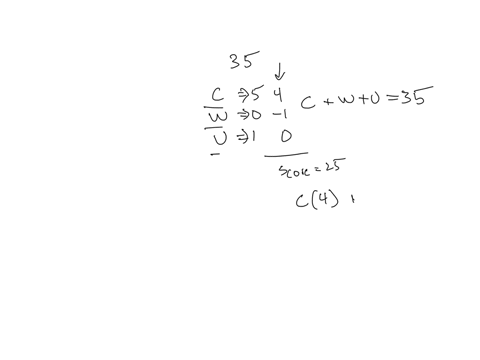 35
↓
C ⇒ 5 4 C + W + U = 35
W ⇒ 0 -1
U ⇒ 1 0
Score = 25
C(4) +